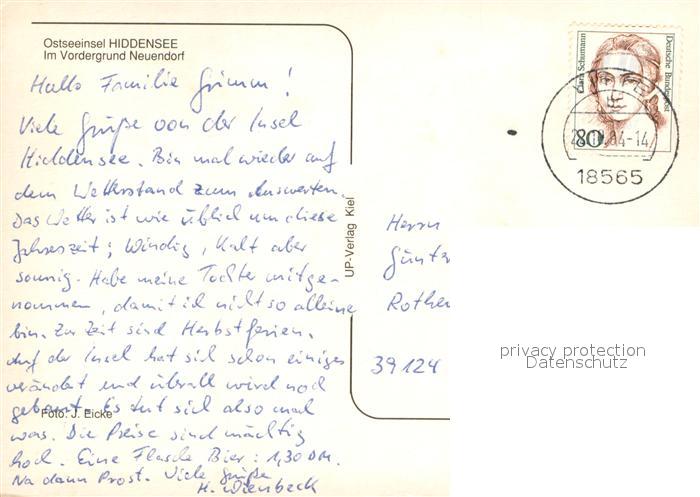 Ostseeinsel HIDDENSEE
Im Vordergrund Neuendorf
Hallo Familie Grimm!
Viele Grüße von der Insel
Hiddensee. Bin mal wieder auf
dem Wetterstand zum Auswerten.
Das Wetter ist wie üblich um diese
Jahreszeit; Windig, Kalt aber
sonnig. Habe meine Tochter mitge-
nommen, damit ich nicht so alleine
bin. Zur Zeit sind Herbstferien.
Auf der Insel hat sich schon einiges
verändert und überall wird noch
gebaut. Es tut sich also mal
was. Die Preise sind mächtig
hoch. Eine Flasche Bier: 1,30 DM.
Na dann Prost. Viele Grüße
H. Wienbeck
Foto: J. Eicke
UP-Verlag Kiel
Clara Schumann
Deutsche Bundespost
80
94-14
18565
Herrn
Günt
Rothe
39124
privacy protection
Datenschutz